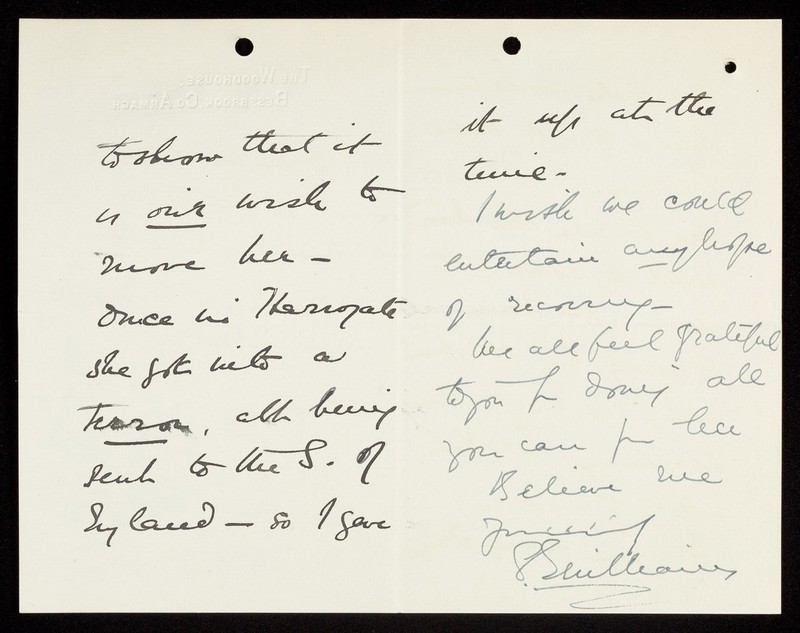 THE WOODHOUSE,
BESSBROOK, CO ARMAGH.
to show that it
is our wish to
move her —
Once in Harrogate
she got into a
terror, abt being
sent to the S. of
England — so I gave
it up at the
time -
I wish we could
entertain any hope
of recovery —
We all feel grateful
to you for doing all
you can for her
Believe me
Yours